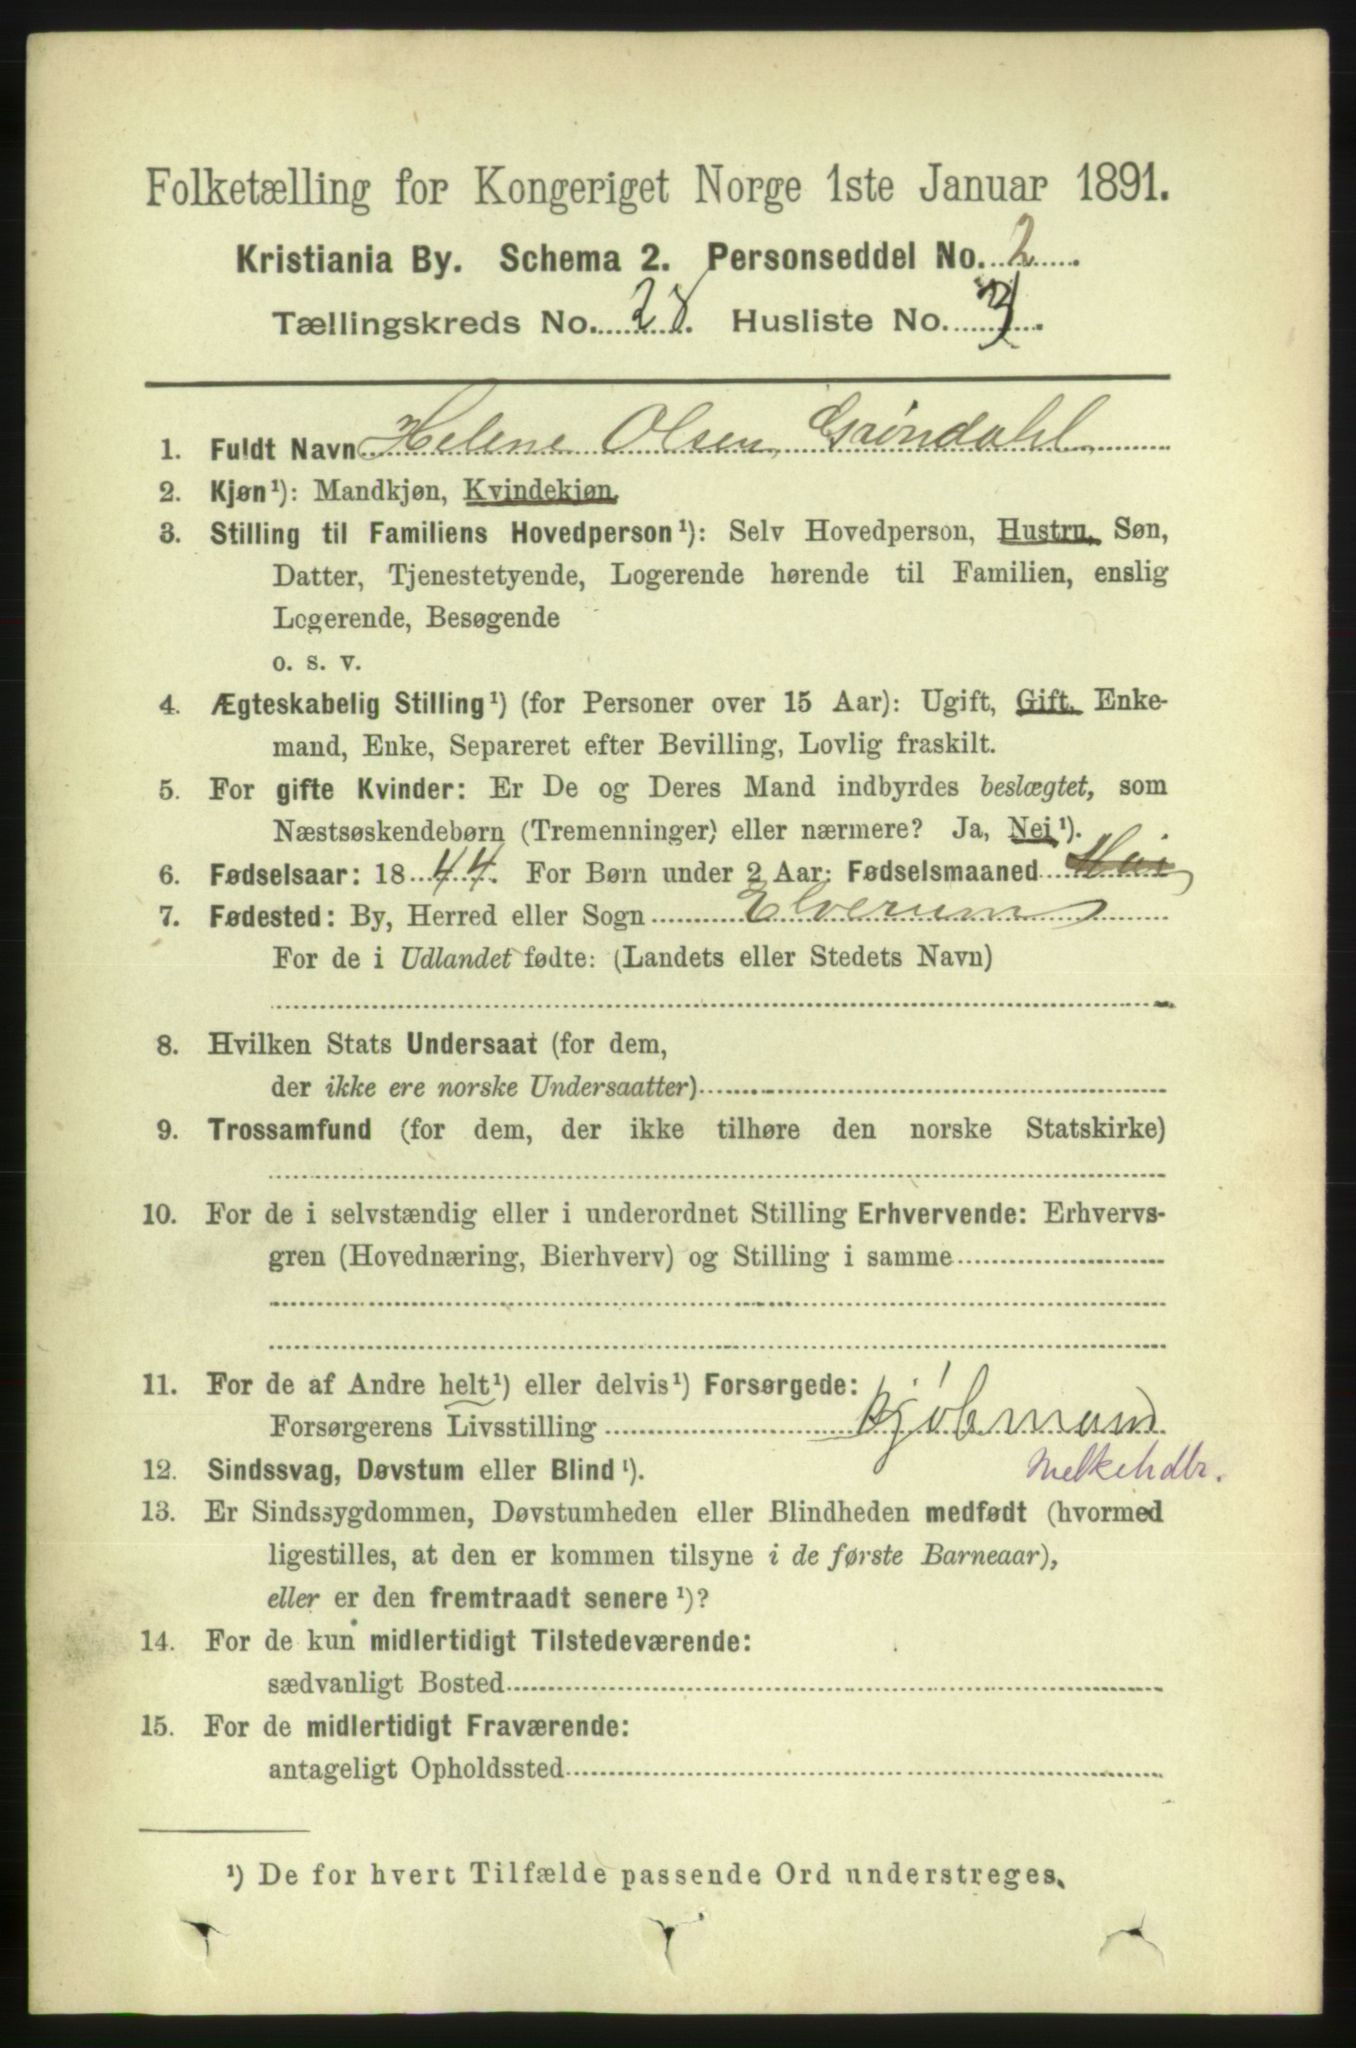 Folketælling for Kongeriget Norge 1ste Januar 1891.
Kristiania By. Schema 2. Personseddel No. 2
Tællingskreds No. 28. Husliste No. 3
1. Fuldt Navn Helene Olsen Grøndahl
2. Kjøn¹): Mandkjøn, Kvindekjøn.
3. Stilling til Familiens Hovedperson¹): Selv Hovedperson, Hustru, Søn,
Datter, Tjenestetyende, Logerende hørende til Familien, enslig
Logerende, Besøgende
o. s. v.
4. Ægteskabelig Stilling¹) (for Personer over 15 Aar): Ugift, Gift, Enke-
mand, Enke, Separeret efter Bevilling, Lovlig fraskilt.
5. For gifte Kvinder: Er De og Deres Mand indbyrdes beslægtet, som
Næstsøskendebørn (Tremenninger) eller nærmere? Ja, Nei¹).
6. Fødselsaar: 1844. For Børn under 2 Aar: Fødselsmaaned Mai
7. Fødested: By, Herred eller Sogn Elverum
For de i Udlandet fødte: (Landets eller Stedets Navn)
8. Hvilken Stats Undersaat (for dem,
der ikke ere norske Undersaatter)
9. Trossamfund (for dem, der ikke tilhøre den norske Statskirke)
10. For de i selvstændig eller i underordnet Stilling Erhvervende: Erhvervs-
gren (Hovednæring, Bierhverv) og Stilling i samme
11. For de af Andre helt¹) eller delvis¹) Forsørgede:
Forsørgerens Livsstilling Kjøbmand
12. Sindssvag, Døvstum eller Blind¹). Melkehdlr.
13. Er Sindssygdommen, Døvstumheden eller Blindheden medfødt (hvormed
ligestilles, at den er kommen tilsyne i de første Barneaar),
eller er den fremtraadt senere¹)?
14. For de kun midlertidigt Tilstedeværende:
sædvanligt Bosted
15. For de midlertidigt Fraværende:
antageligt Opholdssted
¹) De for hvert Tilfælde passende Ord understreges.